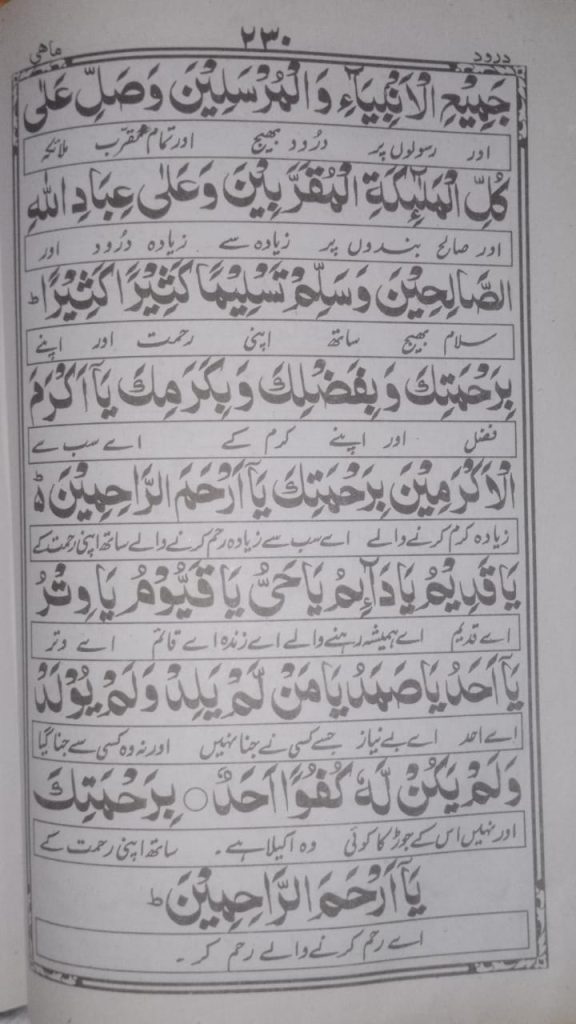 درود ۲۳۰ ماهی
جَمِيْعِ الْاَنْبِيَآءِ وَالْمُرْسَلِيْنَ وَصَلِّ عَلٰى
اور رسولوں پر درُود بھیج اور تمام مقرّب ملائکہ
كُلِّ الْمَلٰٓئِكَةِ الْمُقَرَّبِيْنَ وَعَلٰى عِبَادِ اللهِ
اور صالح بندوں پر زیادہ سے زیادہ درُود اور
الصَّالِحِيْنَ وَسَلِّمْ تَسْلِيْمًا كَثِيْرًا كَثِيْرًا ط
سلام بھیج ساتھ اپنی رحمت اور اپنے
بِرَحْمَتِكَ وَبِفَضْلِكَ وَبِكَرَمِكَ يَآ اَكْرَمَ
فضل اور اپنے کرم کے اے سب سے
الْاَكْرَمِيْنَ بِرَحْمَتِكَ يَآ اَرْحَمَ الرَّاحِمِيْنَ ط
زیادہ کرم کرنے والے اے سب سے زیادہ رحم کرنے والے ساتھ اپنی رحمت کے
يَا قَدِيْمُ يَا دَآئِمُ يَا حَىُّ يَا قَيُّوْمُ يَا وِتْرُ
اے قدیم اے ہمیشہ رہنے والے اے زندہ اے قائم اے وتر
يَآ اَحَدُ يَا صَمَدُ يَا مَنْ لَّمْ يَلِدْ وَلَمْ يُوْلَدْ
اے احد اے بے نیاز جسے کسی نے جنا نہیں اور نہ وہ کسی سے جنا گیا
وَلَمْ يَكُنْ لَّهٗ كُفُوًا اَحَدٌ ○ بِرَحْمَتِكَ
اور نہیں اس کے جوڑ کا کوئی وہ اکیلا ہے۔ ساتھ اپنی رحمت کے
يَآ اَرْحَمَ الرَّاحِمِيْنَ ط
اے رحم کرنے والے رحم کر۔